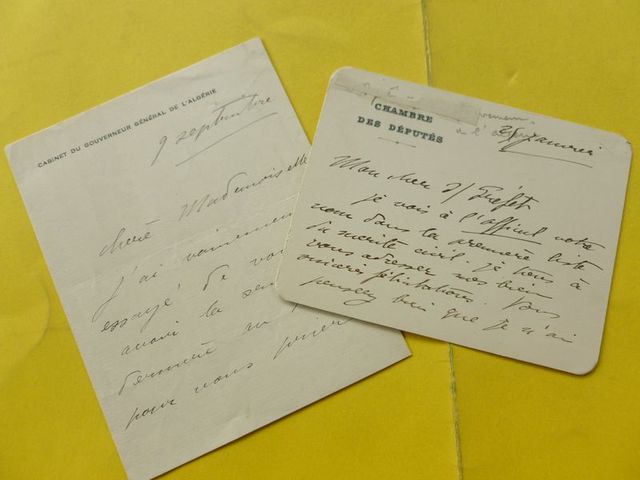 CABINET DU GOUVERNEUR GÉNÉRAL DE L'ALGÉRIE
9 septembre
chère Mademoiselle
J'ai vainement
essayé, de vous
avant la
dernière au
pour vous prier
CHAMBRE
DES DÉPUTÉS
28 janvier
Mon cher S/Préfet
je vois à l'officiel votre
nom dans la première liste
du mérite civil. Je tiens à
vous adresser mes bien
sincères félicitations. Vous
pensez bien que je n'ai